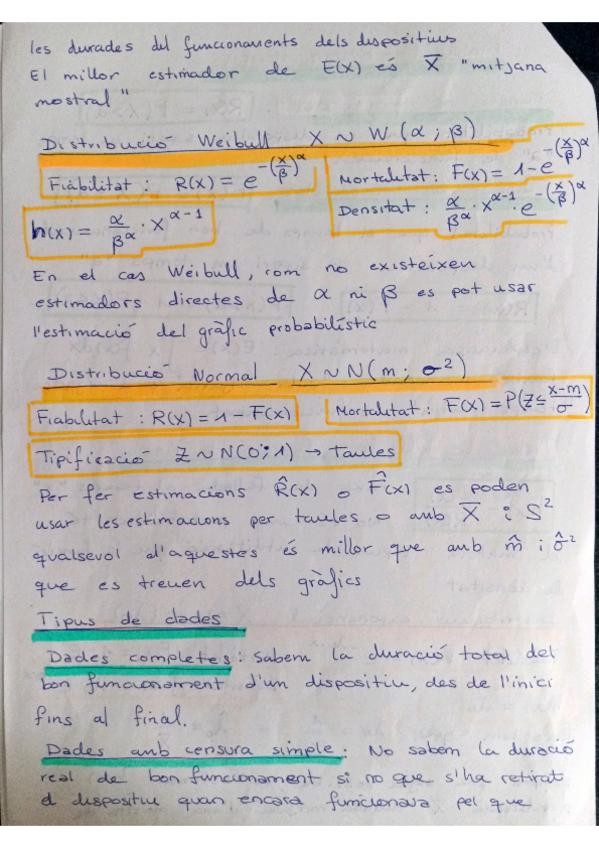 les durades del funcionaments dels dispositius
El millor estimador de E(X) és X̅ "mitjana
mostral"
Distribució Weibull X ~ W (α ; β)
Fiabilitat : R(x) = e^-(x/β)^α
Mortalitat : F(x) = 1 - e^-(x/β)^α
h(x) = α/β^α · x^α-1
Densitat : α/β^α · x^α-1 · e^-(x/β)^α
En el cas Weibull, com no existeixen
estimadors directes de α ni β es pot usar
l'estimació del gràfic probabilístic
Distribució Normal X ~ N(m ; σ²)
Fiabilitat : R(x) = 1 - F(x)
Mortalitat : F(x) = P(Z ≤ x-m/σ)
Tipificació Z ~ N(0 ; 1) → Taules
Per fer estimacions R̂(x) o F̂(x) es poden
usar les estimacions per taules o amb X̅ i S²
qualsevol d'aquestes és millor que amb m̂ i σ̂²
que es treuen dels gràfics
Tipus de dades
Dades completes : Sabem la duració total del
bon funcionament d'un dispositiu, des de l'inici
fins al final.
Dades amb censura simple : No sabem la duració
real de bon funcionament si no que s'ha retirat
el dispositiu quan encara funcionava pel que